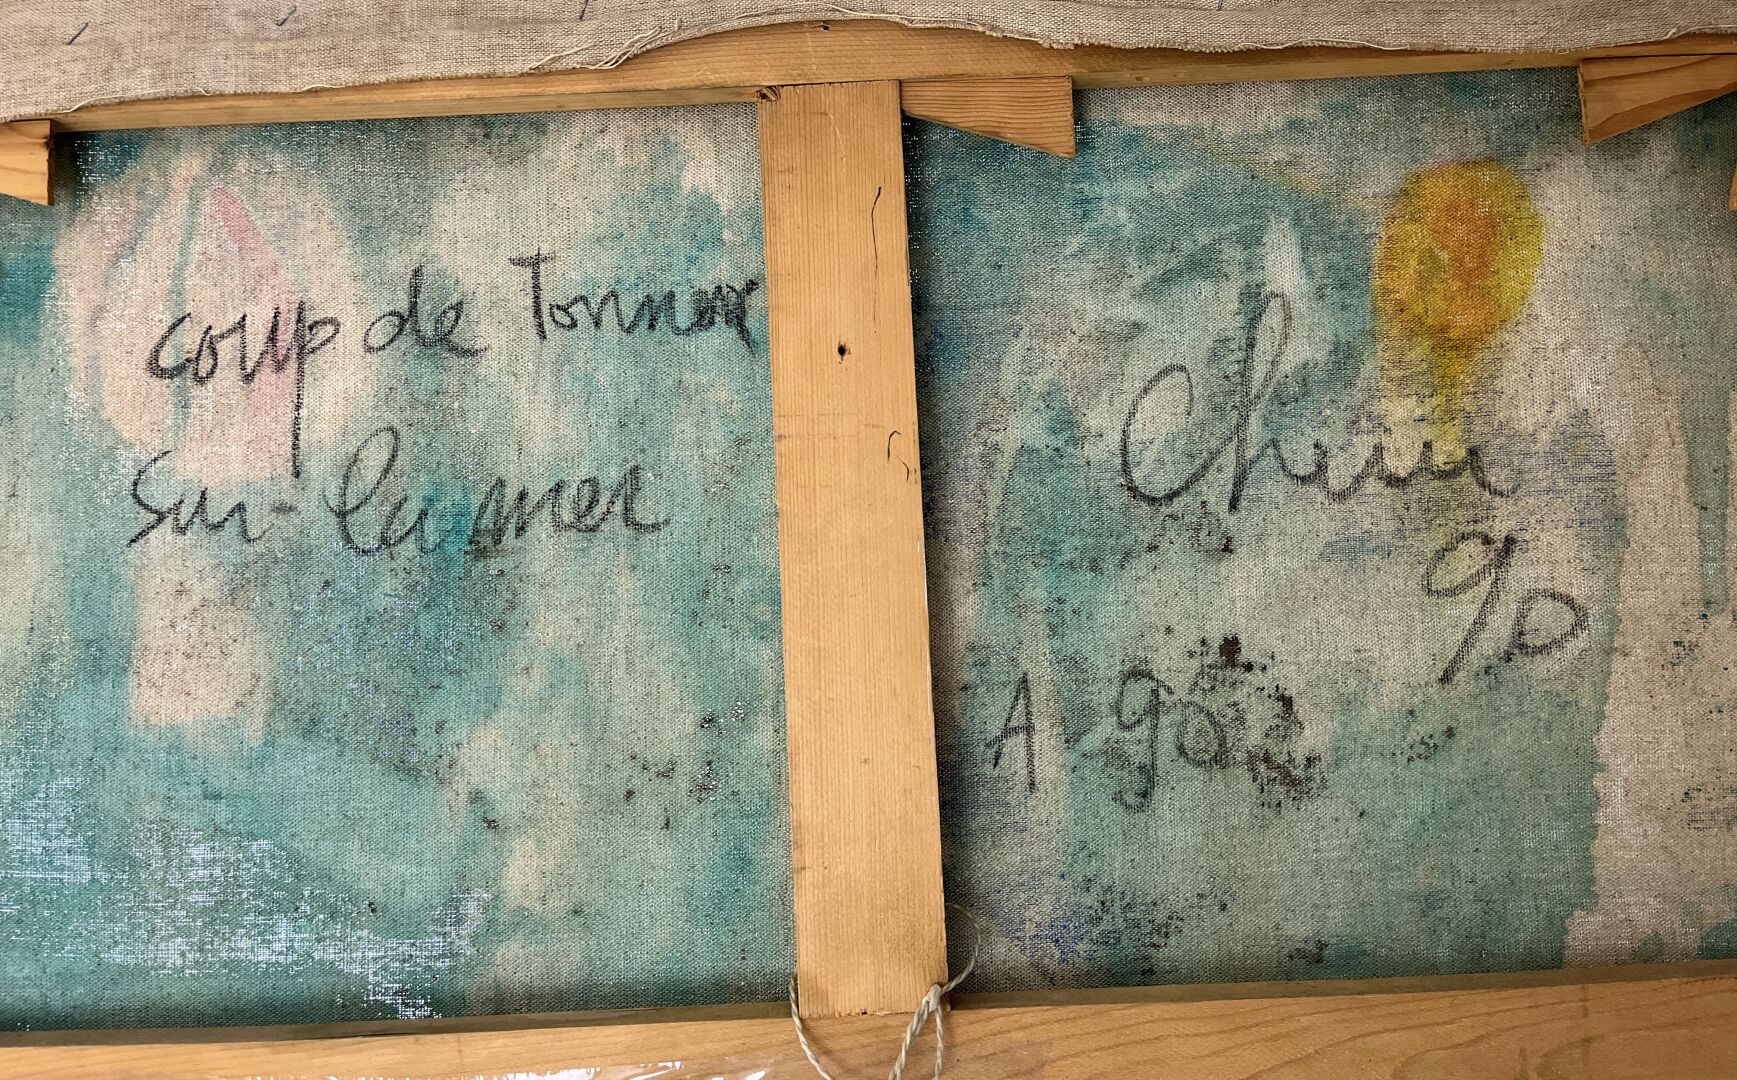 coup de Tonnerr
sur la mer
90
A 90